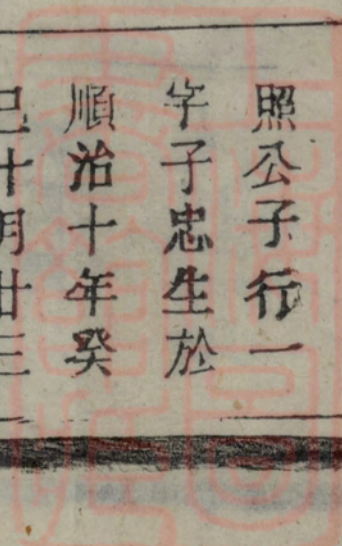 照公子行一
字子忠生於
順治十年癸
巳十月廿三